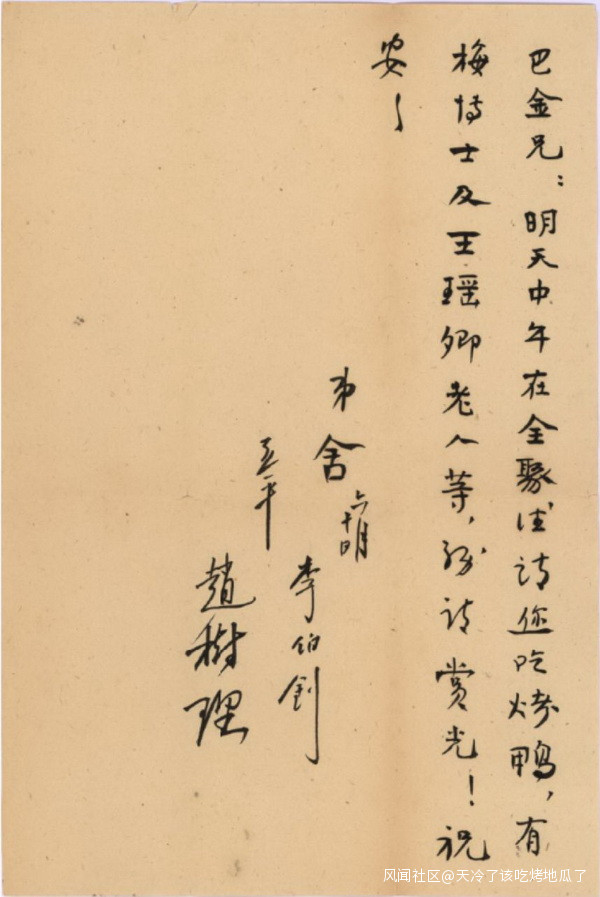 巴金兄：明天中午在全聚德请您吃烤鸭，有
梅博士及王瑶卿老人等，务请赏光！祝
安！
弟
舍
六月
十日
李伯钊
王亚平
趙樹理
风闻社区@天冷了该吃烤地瓜了